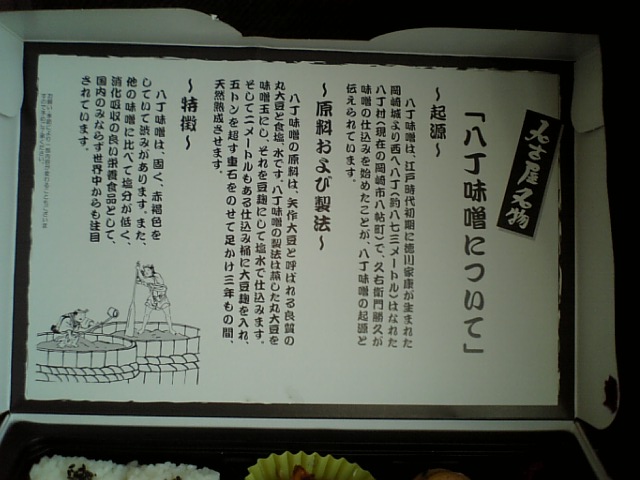 名古屋名物
「八丁味噌について」
～起源～
八丁味噌は、江戸時代初期に徳川家康が生まれた
岡崎城より西へ八丁(約八七三メートル)はなれた
八丁村(現在の岡崎市八帖町)で、久右衛門勝久が
味噌の仕込みを始めたことが、八丁味噌の起源と
伝えられています。
～原料および製法～
八丁味噌の原料は、矢作大豆と呼ばれる良質の
丸大豆と食塩、水です。八丁味噌の製法は蒸した丸大豆を
味噌玉にし、それを豆麹にして塩水で仕込みます。
そして二メートルもある仕込み桶に大豆麹を入れ、
五トンを超す重石をのせて足かけ三年もの間、
天然熟成させます。
～特徴～
八丁味噌は、固く、赤褐色を
していて渋みがあります。また、
他の味噌に比べて塩分が低く、
消化吸収の良い栄養食品として、
国内のみならず世界中からも注目
されています。